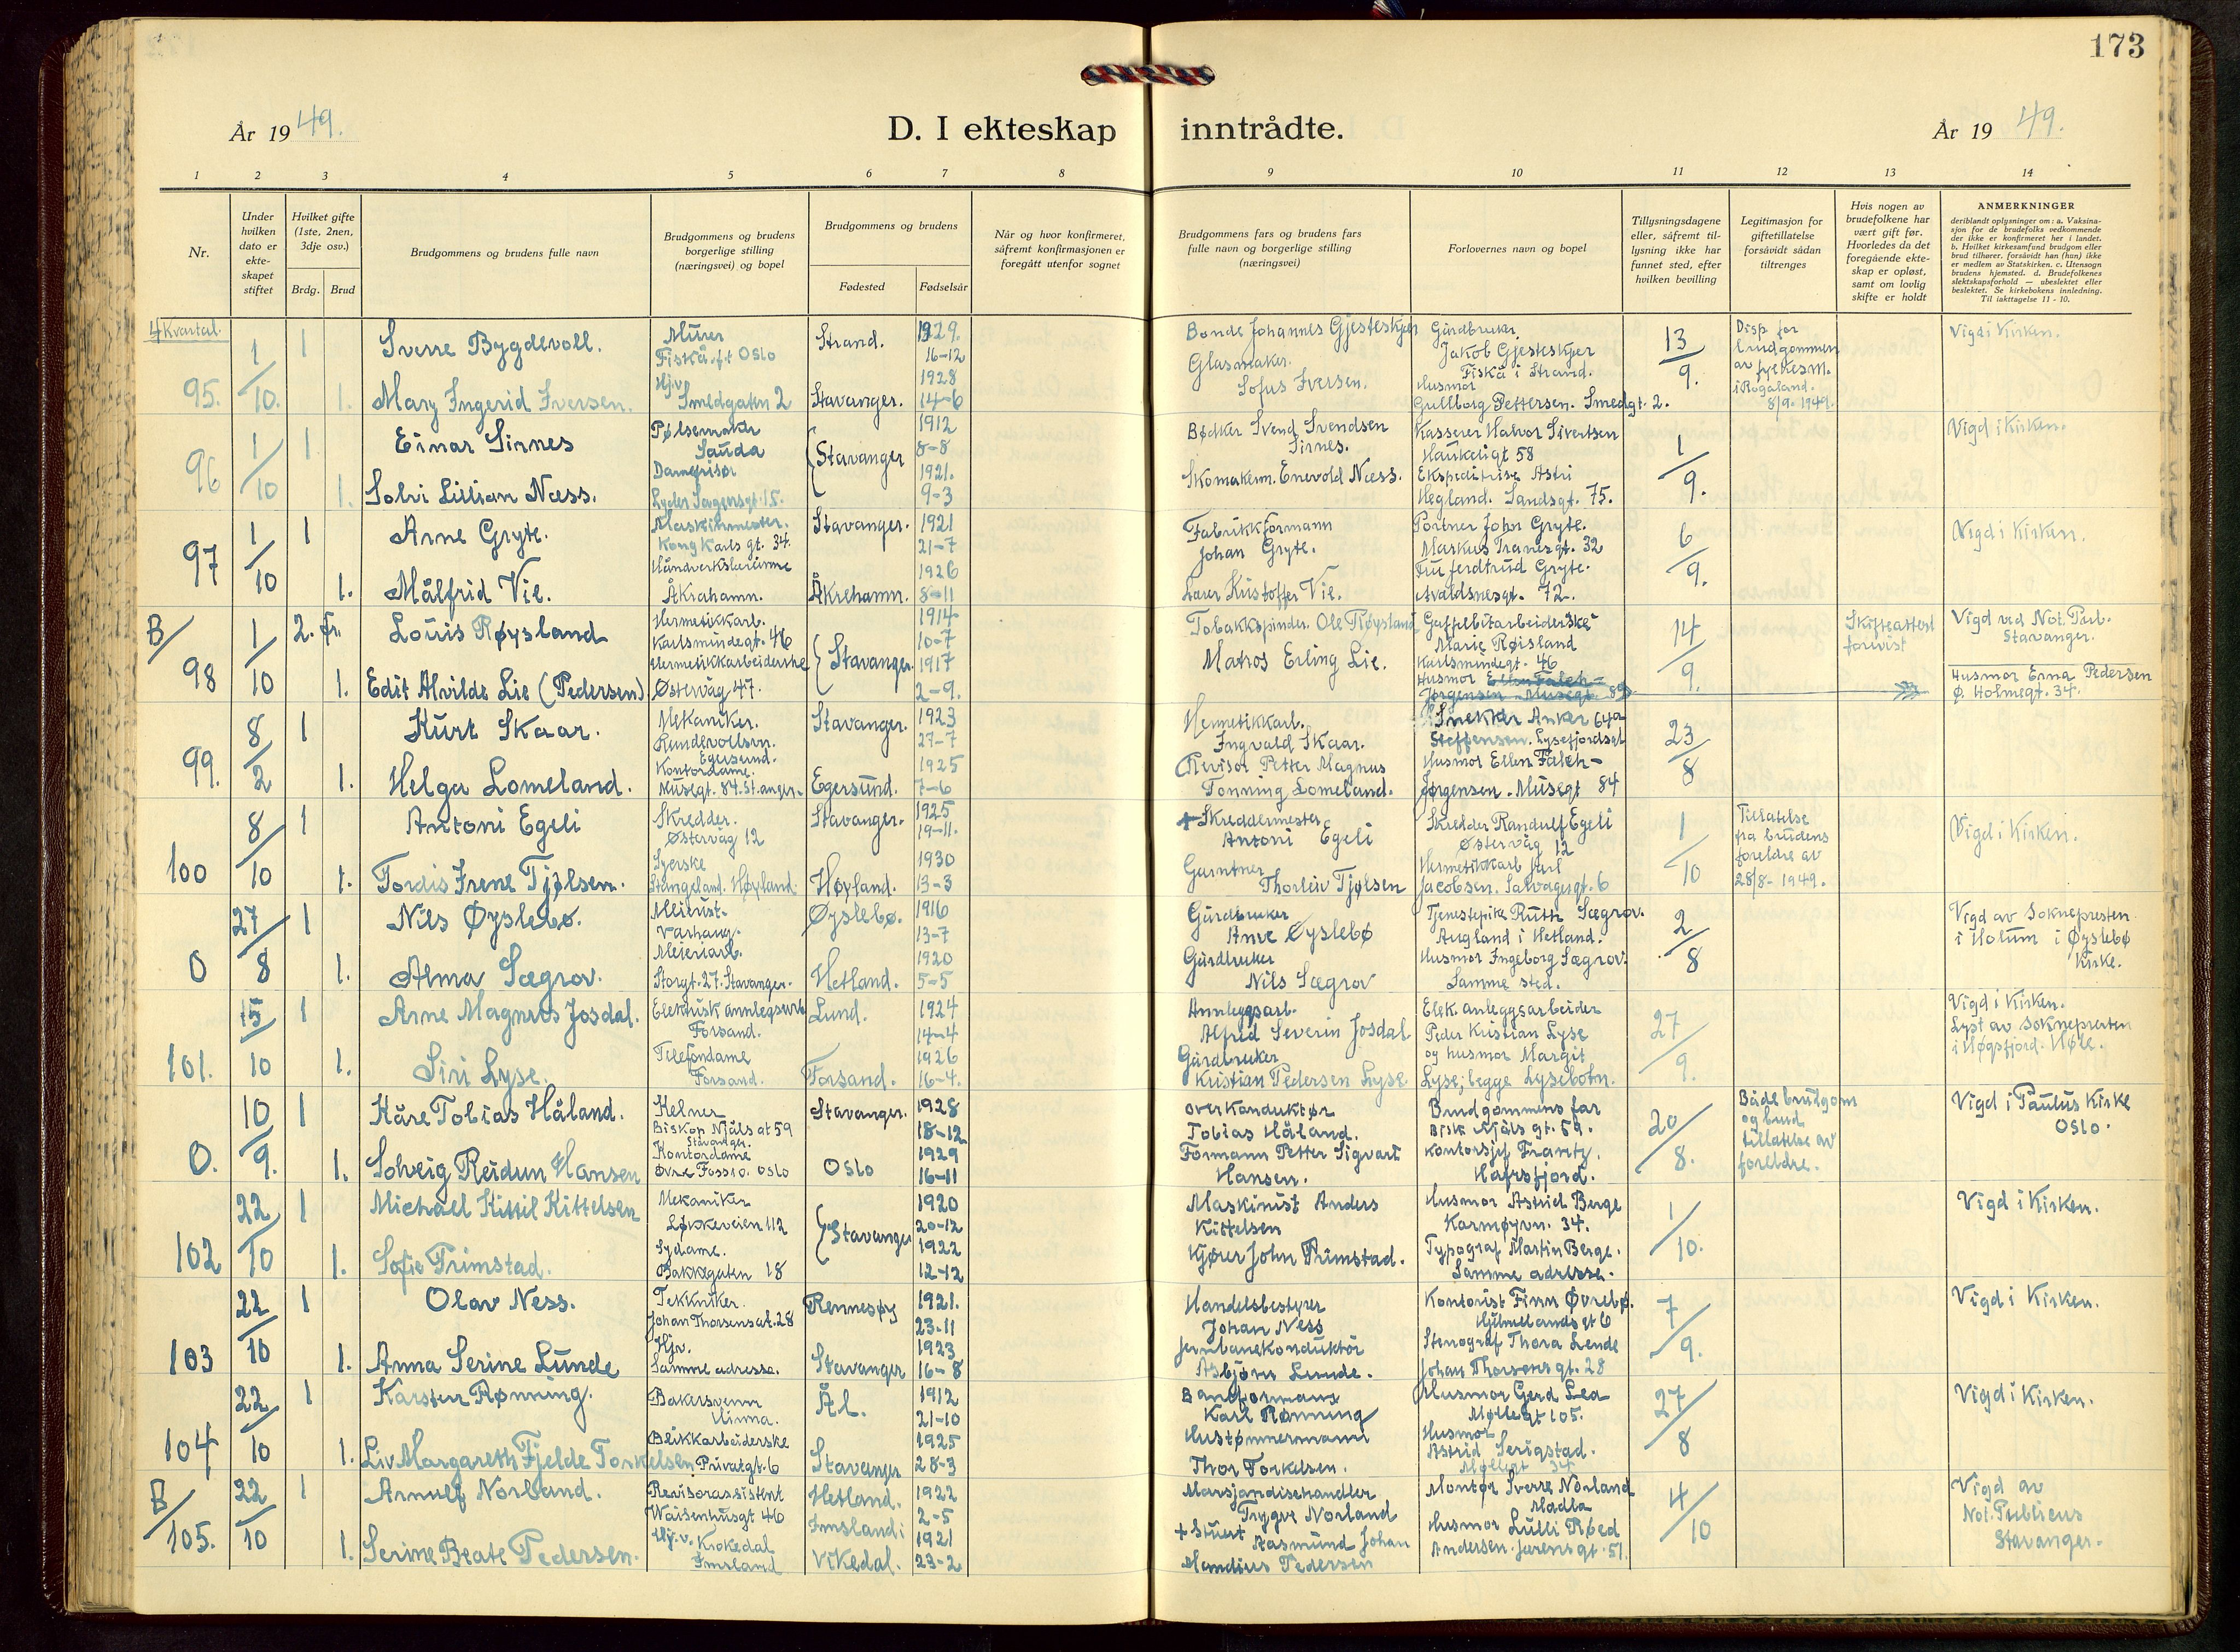 173
År 1949.
D. I ekteskap inntrådte.
År 19 49.
1 2 3 4 5 6 7 8 9 10 11 12 13 14
Nr.
Under hvilken dato er ekte-skapet stiftet
Hvilket gifte (1ste, 2nen, 3dje osv.)
Brdg. Brud
Brudgommens og brudens fulle navn
Brudgommens og brudens borgerlige stilling (næringsvei) og bopel
Brudgommens og brudens
Fødested Fødselsår
Når og hvor konfirmeret, såfremt konfirmasjonen er foregått utenfor sognet
Brudgommens fars og brudens fars fulle navn og borgerlige stilling (næringsvei)
Forlovernes navn og bopel
Tillysningsdagene eller, såfremt til-lysning ikke har funnet sted, efter hvilken bevilling
Legitimasjon for giftetillatelse forsåvidt sådan tiltrenges
Hvis nogen av brudefolkene har vært gift før. Hvorledes da det foregående ekte-skap er opløst, samt om lovlig skifte er holdt
ANMERKNINGER
deriblandt oplysninger om: a. Vaksina-sjon for de brudefolks vedkommende der ikke er konfirmeret her i landet. b. Hvilket kirkesamfund brudgom eller brud tilhører, forsåvidt han (hun) ikke er medlem av Statskirken. c. Utensogn brudens hjemsted. d. Brudefolkenes slektskapsforhold — ubeslektet eller beslektet. Se kirkebokens innledning. Til iakttagelse 11 - 10.
4 Kvartal.
95. 1/10. 1 Sverre Bygdevoll. Murer Fiskå. Oslo Strand. 1929. 16-12
Bonde Johannes Gjesteskjer Gårdbruker Jakob Gjesteskjer Fiskå i Strand. 13/9. Disp. for brudgommen av fylkesm. i Rogaland. 8/9. 1949. Vigd i Kirken.
1. Mary Ingerid Iversen. Hj.v Smedgaten 2 Stavanger. 1928 14-6
Glasmaker. Sofus Iversen. Husmor Gullborg Pettersen. Smedgt. 2.
96 1/10 1 Einar Sirnes Pølsemaker Sauda Stavanger 1912 8-8
Bødker Svend Svendsen Sirnes. Kasserer Halvor Sivertsen Haukeligt 58 1/9. Vigd i Kirken.
1. Solvi Lillian Næss. Damefrisør Lyder Sagensgt. 15. 1921. 9-3
Skomakerm. Enevold Næss. Ekspeditrise Astri Hegland. Sandsgt. 75.
97 1/10 1 Arne Gryte. Maskinmester. Kong Karls gt. 34. Stavanger. 1921 21-7
Fabrikkformann Johan Gryte. Portner John Gryte. Markus Tranesgt. 32 6/9. Vigd i Kirken.
1. Målfrid Vie. Håndverkslærerinne Åkrahamn. Åkrehamn. 1926 8-11
Lærer Kristoffer Vie. Fru Jerdtrud Gryte. Avaldsnesgt. 72.
B/98 1/10 2. fr. Louis Røysland Hermetikkarb. Karlsmindegt. 46 Stavanger. 1914 10-7
Tobakkspinder. Ole Røysland Gaffelbitarbeiderske Marie Røisland Karlsmindegt. 46 14/9. Skifteattest forevist Vigd ved Not. Pub. Stavanger.
1. Edit Alvilde Lie (Pedersen). Hermetikkarbeiderske Østervåg 47. 1917 2-9.
Matros Erling Lie. Husmor Ellen Falch-Jørgensen Musegt. 89 Husmor Erna Pedersen Ø. Holmegt. 34.
99. 8/2 1 Kurt Skaar. Mekaniker. Rundevollsvn. Egersund. Stavanger. 1923 27-7
Hermetikkarb. Ingvald Skaar. Snekker Anker Steffensen. Lysefjordsgt 64a 23/8
1. Helga Lomeland. Kontordame. Musegt. 84. St.anger. Egersund. 1925 7-6
Revisor Petter Magnus Tonning Lomeland. Husmor Ellen Falch-Jørgensen. Musegt 84
100 8/10 1 Antoni Egeli Skredder. Østervåg 12 Stavanger. 1925 19-11.
+ Skreddermester Antoni Egeli Skredder Randulf Egeli Østervåg 12 1/10 Tillatelse fra brudens foreldre av 28/8- 1949. Vigd i Kirken.
1. Tordis Irene Tjølsen. Syerske Stangeland. Høyland. Høyland. 1930 13-3
Gartner Thorleiv Tjølsen Hermetikkarb Karl Jacobsen. Salvagergt. 6
0 27/8 1 Nils Øyslebø. Meierist. Varhaug. Øyslebø. 1916 13-7
Gårdbruker Anve Øyslebø Tjenestepike Ruth Sægrov. Augland i Hetland. 2/8 Vigd av Soknepresten i Holum i Øyslebø Kirke.
1. Alma Sægrov. Meieriarb. Storgt. 27. Stavanger. Hetland. 1920 5-5
Gårdbruker Nils Sægrov Husmor Ingeborg Sægrov. Samme sted.
101. 15/10 1 Arne Magnus Josdal. Elektrisk annlegsarb Forsand. Lund. 1924 14-4
Annleggsarb. Alfred Severin Josdal. Elek. anleggsarbeider Peder Kristian Lyse 27/9. Vigd i Kirken. Lyst av Soknepresten i Høgsfjord. Høle.
1. Siri Lyse. Telefondame Forsand. Forsand. 1926 16-4.
Gårdbruker Kristian Pedersen Lyse. og husmor Margit Lyse; begge Lysebotn.
0. 10/9. 1 Kåre Tobias Håland. Kelner Biskop Njåls gt 59 Stavanger. Stavanger. 1928 18-12
Overkonduktør Tobias Håland. Brudgommens far Bisk Njåls gt. 59. 20/8. Både brudgom og brud tillatelse av foreldre. Vigd i Paulus Kirke Oslo.
1. Solveig Reidun Hansen Kontordame Øvre Foss 10. Oslo Oslo 1929 16-11
Formann Petter Sigvart Hansen. Kontorsjef Frantz. Hafrsfjord.
102 22/10 1 Michael Kittil Kittelsen Mekaniker Løkkeveien 112 Stavanger 1920 20-12
Maskinist Anders Kittelsen Husmor Astrid Berge Karmøyvn. 34. 1/10. Vigd i Kirken.
1. Sofie Frimstad. Sydame. Bakkegaten 18 1922 12-12
Kjører John Frimstad. Typograf Martin Berge. Samme adresse.
103 22/10 1 Olav Ness. Tekkniker. Johan Thorsensgt. 28 Rennesøy 1921. 23-11
Handelsbestyrer Johan Ness Kontorist Finn Øvrebø. Hjelmelandsgt 6 7/9. Vigd i Kirken.
1. Anna Serine Lunde Hjv. Samme adresse. Stavanger 1923 16-8
Jernbanekonduktør Asbjørn Lunde. Stenograf Thora Lende Johan Thorsens gt. 28
104 22/10 1 Karsten Rønning. Bakersvenn Hinna. Ål. 1912 21-10
Baneformann Karl Rønning Husmor Gerd Lea Møllegt 105. 27/8 Vigd i Kirken.
1. Liv Margareth Fjelde Torkelsen Blikkarbeiderske Privatgt. 6 Stavanger 1925 28-3
Hustømmermann Thor Torkelsen. Husmor Astrid Serigstad. Møllegt 34
B/105. 22/10 1 Arnulf Norland. Revisorassistent Waisenhusgt 46 Hetland. 1922 2-5
Marsjandisehandler Trygve Norland Montør Sverre Norland Madla 4/10 Vigd av Not. Publicus Stavanger.
1. Serine Beate Pedersen. Hj.v. Krokedal Imsland Imsland i Vikedal. 1921 23-2
+ Stuert Aasmund Johan Mandius Pedersen Husmor Lulli Røed Andersen. Jærensgt. 51.